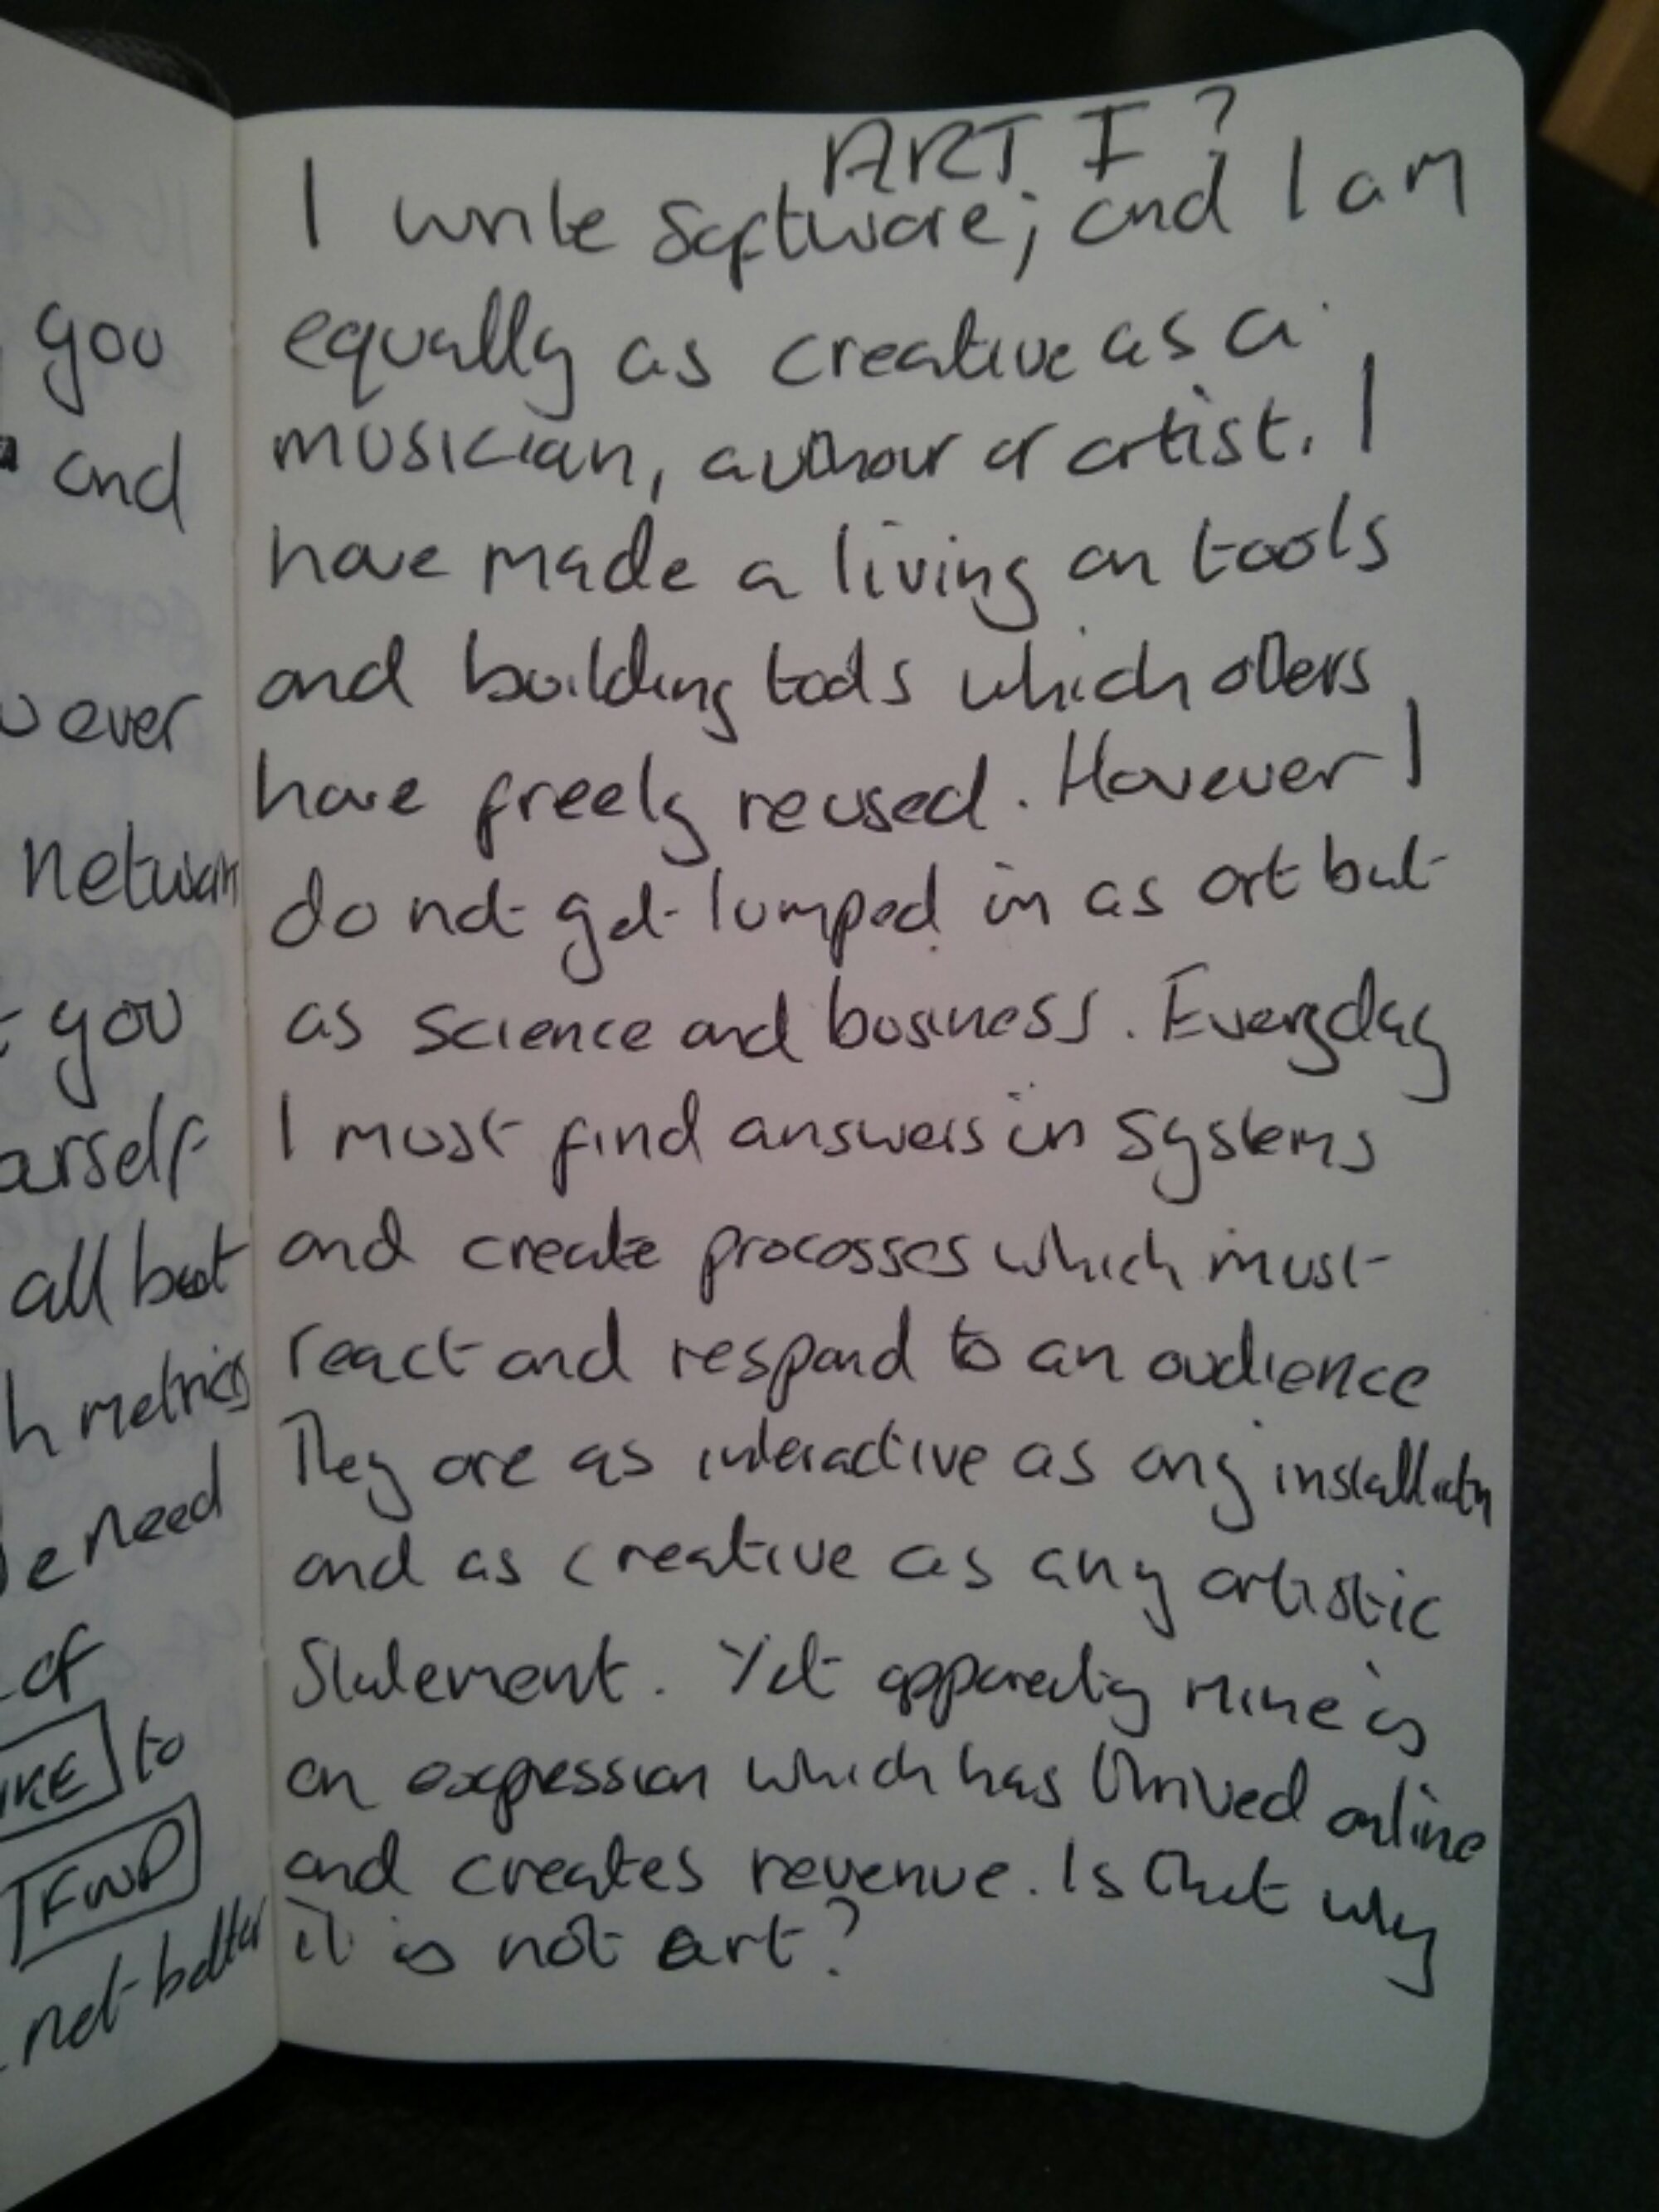 you
and
ever
network
you
urself
all but
h metrics
e need
of
IKE to
FWD
not better
ART I?
I write software; and I am
equally as creative as a
musician, authour or artist. I
have made a living on tools
and building tools which others
have freely reused. However I
do not get lumped in as art but
as science and business. Everyday
I must find answers in systems
and create processes which must
react and respond to an audience
They are as interactive as any installation
and as creative as any artistic
Statement. Yet apparently mine is
an expression which has thrived online
and creates revenue. Is that why
it is not art?